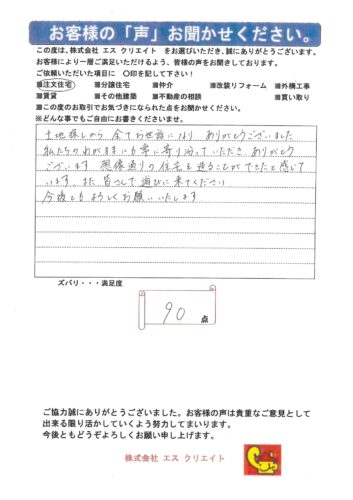 お客様の「声」お聞かせください。
この度は、株式会社 エス クリエイト をお選びいただき、誠にありがとうございます。
お客様により一層ご満足いただけるよう、皆様の声をお聞きしております。
ご依頼いただいた項目に 〇印を記して下さい!
■注文住宅 ■分譲住宅 ■仲介 ■改装リフォーム ■外構工事
■賃貸 ■その他建築 ■不動産の相談 ■買い取り
■この度のお取引でお気づきになられた点をお聞かせください。
※どんな事でもご自由にお書きくださいませ。
土地探しから 全てお世話になり ありがとうございました
私たちのわがままにも寄り沿っていただき ありがとう
ございます 想像通りの住宅を造ることができたと感じて
います。また 皆さんで遊びに来てください
今後ともよろしくお願いいたします
ズバリ・・・満足度
90 点
ご協力誠にありがとうございました。お客様の声は貴重なご意見として
出来る限り活かしていくよう努力してまいります。
今後ともどうぞよろしくお願い申し上げます。
株式会社 エス クリエイト